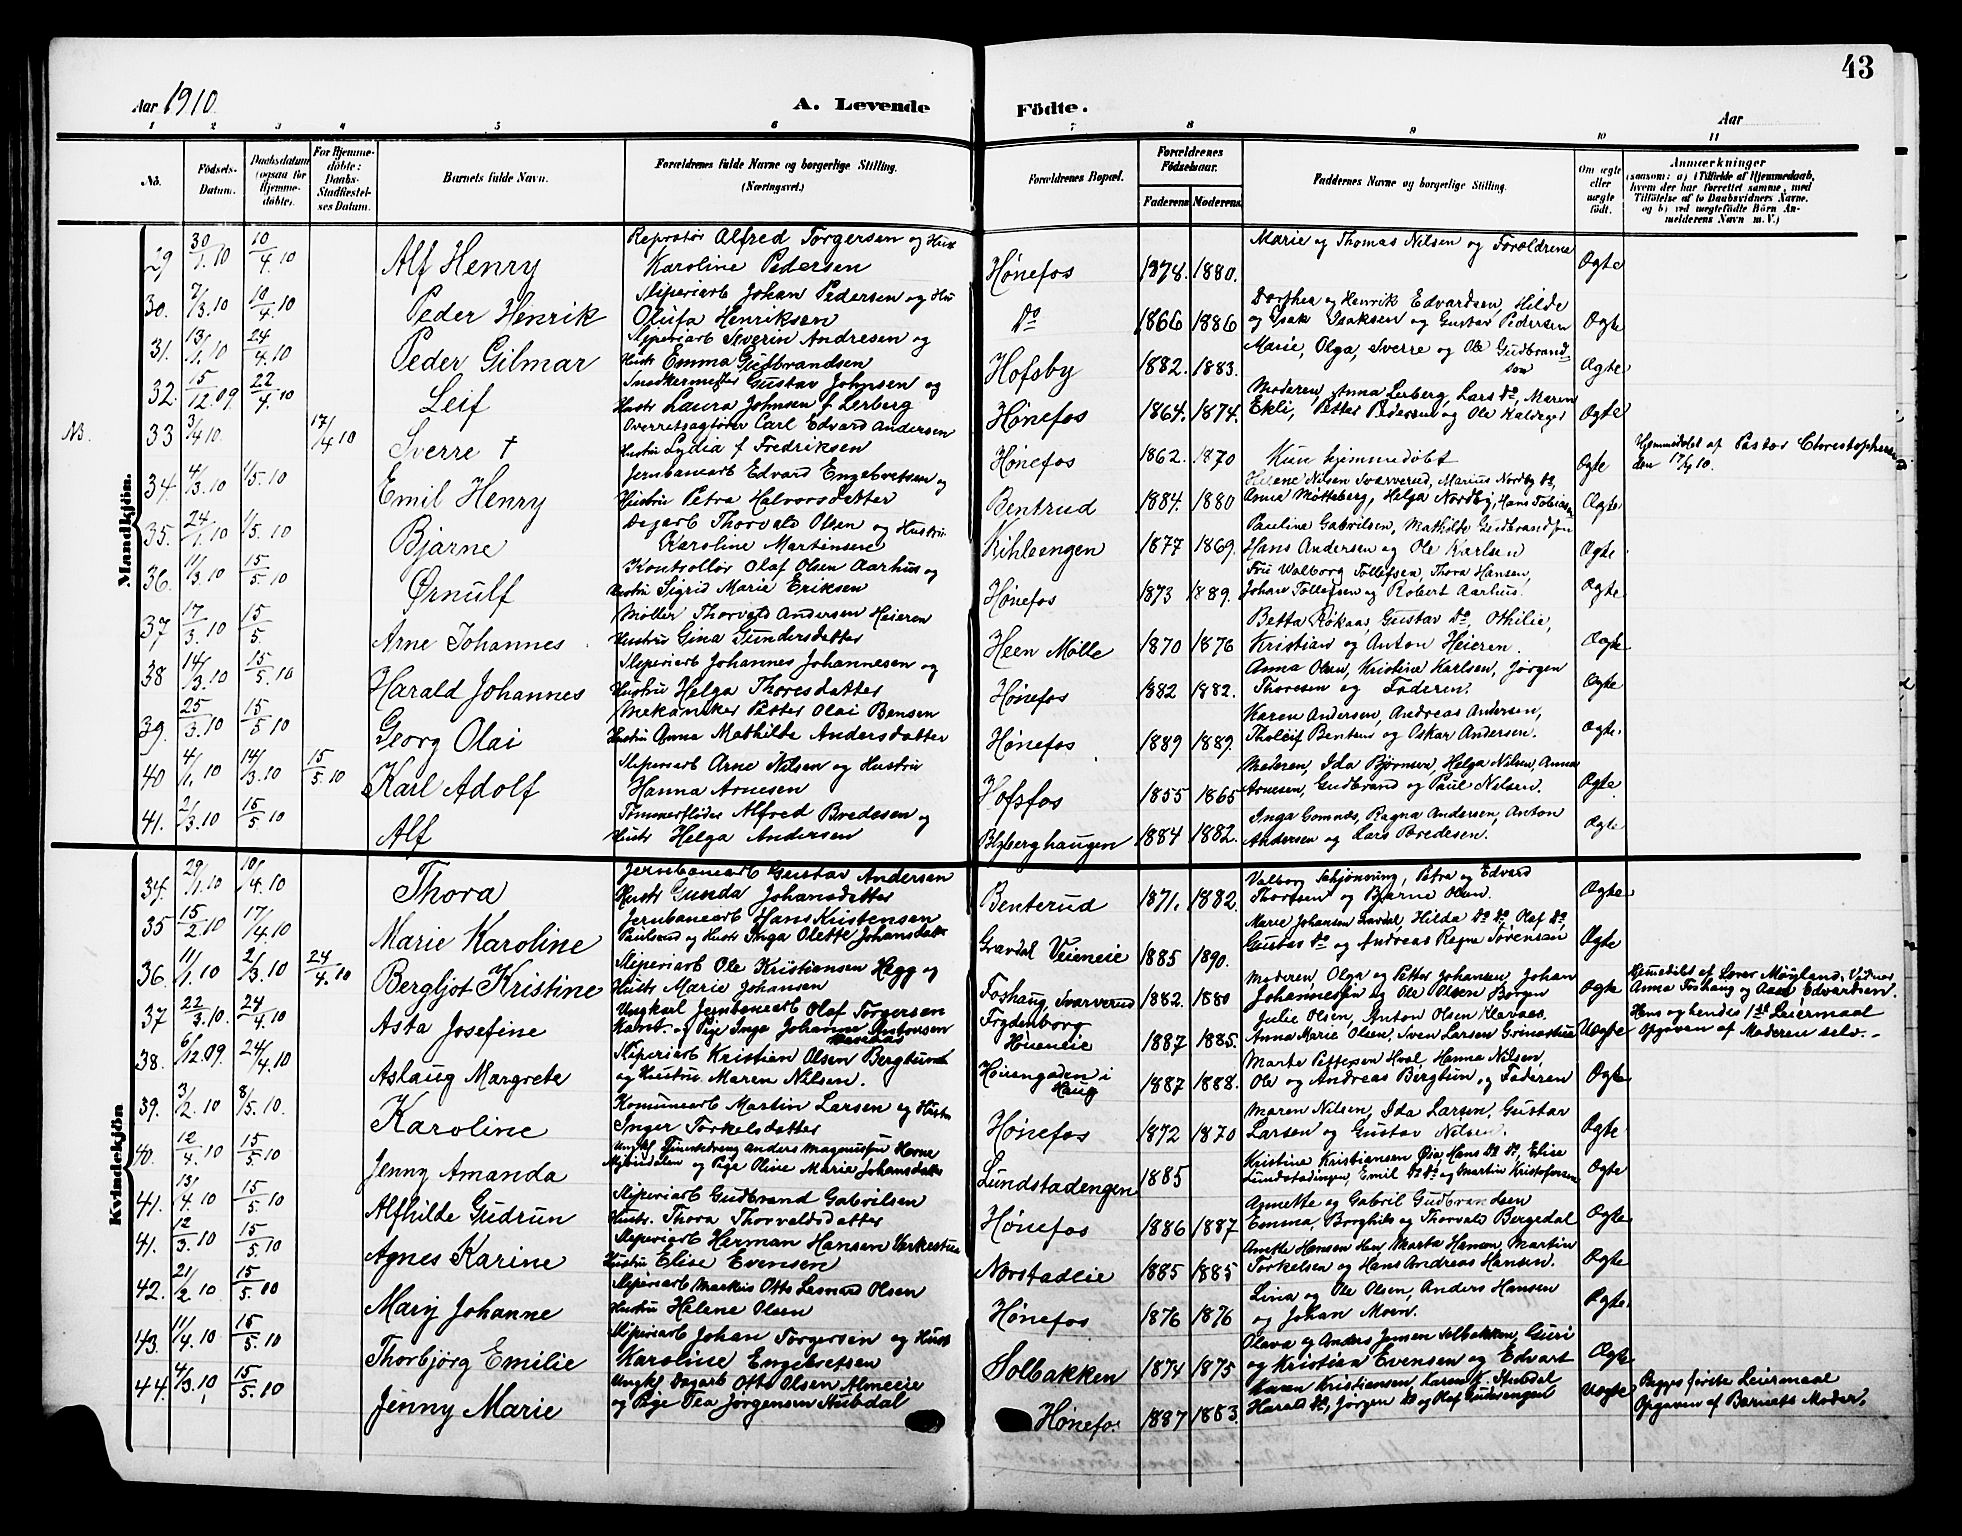 43
Aar 1910.
A. Levende Födte.
Aar
1 2 3 4 5 6 7 8 9 10 11
No. Födsels-Datum. Daabsdatum (ogsaa for Hjemme-döbte). For Hjemme-döbte: Daabs-Stadfæstel-ses Datum. Barnets fulde Navn. Forældrenes fulde Navne og borgerlige Stilling. (Næringsvei.) Forældrenes Bopæl. Forældrenes Födselsaar. Faderens Moderens Faddernes Navne og borgerlige Stilling. Om ægte eller uægte födt. Anmærkninger (saasom: a) i Tilfælde af Hjemmedaab, hvem der har forrettet samme, med Tilföielse af to Daabsvidners Navne, og b) ved uægtefödte Börn An-melderens Navn m. V.)
Mandkjön.
29 30/1.10 10/4.10 Alf Henry Alfred Torgersen og Hust Karoline Pedersen Hønefos 1878. 1880. Marie og Thomas Nilsen og Forældrene Ægte
30. 7/3.10 10/4.10 Peder Henrik Sliperiarb Johan Pedersen og Hu Olufa Henriksen Do 1866 1886 Dorthea og Henrik Edvardsen, Hilde og Isak Isaksen og Gustav Pedersen Ægte
31. 13/1.10 24/4.10 Peder Gilmar Sliperiarb Severin Andresen og Hustr Emma Gudbrandsen Hofsby 1882. 1883. Marie, Olga, Sverre og Ole Gudbrandsen Ægte
32. 15/12.09 22/4.10 Leif Snedkermester Gustav Johnsen og Hustr Laura Johnsen f Lerberg Hønefos 1864. 1874. Moderen, Anna Lerberg, Lars Do, Maren Ekli, Petter Pedersen og Ole Ægte
NB. 33 3/4 10. 17/4 10 Sverre † Overretsagfører Carl Edvard Andersen Hustru Lydia f Fredriksen Hønefos 1862. 1870 Kun hjemmedøbt Ægte Hjemmedøbt af Pastor den 17/4 10.
34. 4/3.10 1/5.10 Emil Henry Jernbanearb Edvard Engebretsen og Hustru Petra Halvorsdatter Bentrud 1884. 1880 Helene Nilsen Svarverud, Marius Nordby Do, Anna Møtteberg, Helga Nordby, Hans Tobiasen Ægte
35. 24/1.10 1/5.10 Bjarne Dagarb Thorvald Olsen og Hustru Karoline Martinsen Kihleengen 1877 1869. Pauline Gabrilsen, Mathilde Gudbrandsen Hans Andersen og Ole Karlsen Ægte
36. 11/3.10 15/5.10 Ørnulf Kontrollør Olaf Olsen Aarhus og Hustru Sigrid Marie Eriksen Hønefos 1873 1889. Fru Walborg Tollefsen, Thora Hansen, Johan Tollefsen og Robert Aarhus. Ægte
37 17/3.10 15/5. Arne Johannes Møller Thorvald Andersen Heieren Hustru Gina Gundersdatter Heen Mølle 1870 1876 Betta Røkaas, Gustav Do, Othilie, Kristian og Anton Heieren. Ægte
38 14/3.10 15/5.10 Harald Johannes Sliperiarb Johannes Johannesen og Hustru Helga Thoresdatter Hønefos 1882 1882. Anna Olsen, Kristine Karlsen, Jørgen Thoresen og Faderen. Ægte
39. 25/3.10 15/5 10 Georg Olai Mekaniker Petter Olai Bensen Hustru Anna Mathilde Andersdatter Hønefos 1889 1889. Karen Andersen, Andreas Andersen, Tholeif Bentsen og Oskar Andersen. Ægte.
40 4/1.10 14/3.10 15/5 10 Karl Adolf Sliperiarb Arne Nilsen og Hustru Hanna Arnesen Hofsfos 1855 1865 Moderen, Ida Bjørnsen, Helga Nilsen, Anna Arnesen, Gudbrand og Paul Nilsen. Ægte
41. 2/3.10 15/5.10 Alf Tømmerfløder Alfred Bredesen og Hustr Helga Andersen Blybergshaugen 1884 1882. Inga Gomnæs, Ragna Andersen, Anton Andersen og Lars Bredesen. Ægte
Kvindekjön
34. 29/1.10 10/4.10 Thora Jernbanearb Gustav Andersen Hustr Gunda Johansdatter Benterud 1871. 1882. Valborg Schjønning, Petra og Edvard Thoresen og Bjarne Olsen. Ægte
35 15/2.10 17/4.10 Marie Karoline Jernbanearb Hans Kristensen Paulsrud og Hustr Inga Olette Johansdatter Gravdal Veieneie 1885 1890. Marie Johansen Gravdal, Hilda Do Do, Olaf Do, Gustav Do og Andreas Ragne Sørensen Ægte
36. 11/1.10 2/3.10 24/4.10 Bergljot Kristine Sliperiarb Ole Kristiansen Hegg og Hustr Marie Johansen Foshaug, Svarverud 1882. 1880 Moderen, Olga og Petter Johansen, Johan Johannesen og Ole Olsen Borgen Ægte Hjemedøbt af Lærer Møyland. Vidner Anna Foshaug og Edvardsen.
37 22/3.10. 24/4.10 Asta Josefine Ungkarl Jernbanearb Olaf Torgersen og Pige Inga Johanne Antonsen Frydenborg Høneneie 1887 1885. Julie Olsen, Anton Olsen Klavaas, Anna Marie Olsen, Sven Larsen Grinastuen Uægte Hans og hendes 1ste Leiermaal Opgaven af Moderen selv.-
38. 6/12.09 24/4.10 Aslaug Margrete Sliperiarb Kristian Olsen Bergtun og Hustru Maren Nilsen. Heiengaden i Haug 1887 1888. Marte Pettersen Hval, Hanna Nilsen, Ole og Andreas Bergtun, og Faderen Ægte
39. 3/2.10 8/5.10. Karoline Komunearb Martin Larsen og Hustru Inger Torkelsdatter Hønefos 1872 1870 Maren Nilsen, Ida Larsen, Gustav Larsen og Gustav Nilsen. Ægte
40. 12/4.10 15/5.10 Jenny Amanda Ungkl Tjenestedreng Anders Magnussen og Pige Oline Marie Johansdatter Lundstadengen 1885 Kristine Kristiansen Øia, Hans Do Do, Elise Lundstadengen, Emil Do Do og Martin Kristofersen Ægte
41. 13/4.10 15/5.10 Alfhilde Gudrun Sliperiarb Gudbrand Gabrilsen Hustr. Thora Thorvaldsdatter Hønefos 1886 1887 Annette og Gabril Gudbrandsen Emma, Borghild og Thorvald Bergedal Ægte
41. 12/3.10 15/5.10 Agnes Karine Sliperiarb Herman Hansen Hustru Elise Evensen Norstadeie 1885 1885 Anette Hansen Hen, Marta Hansen, Martin Torkelsen og Hans Andreas Hansen. Ægte
42. 21/2 10 15/5.10 Mary Johanne Sliperiarb Markus Otto Leonard Olsen Hustru Helene Olsen Hønefos 1876 1876 Lina og Ole Olsen, Anders Hansen og Johan Moen. Ægte.
43. 11/4.10 15/5.10 Thorbjørg Emilie Sliperiarb Johan Torgersen og Hustr Karoline Engebretsen Solbakken 1874 1875 Olava og Anders Jensen Solbakken, Guri og Kristian Evensen og Edvart Ægte
44. 4/3.10 15/5.10 Jenny Marie Ungkl Dagarb Otto Olsen Almeeie og Pige Tea Jørgensen Hubdal Hønefos. 1887 1883. Maren Kristiansen, Karen K. Hubdal Harald Do, Jørgen Do og Olaf Uægte Begges første Leiermaal Opgaven af Barnets Moder.